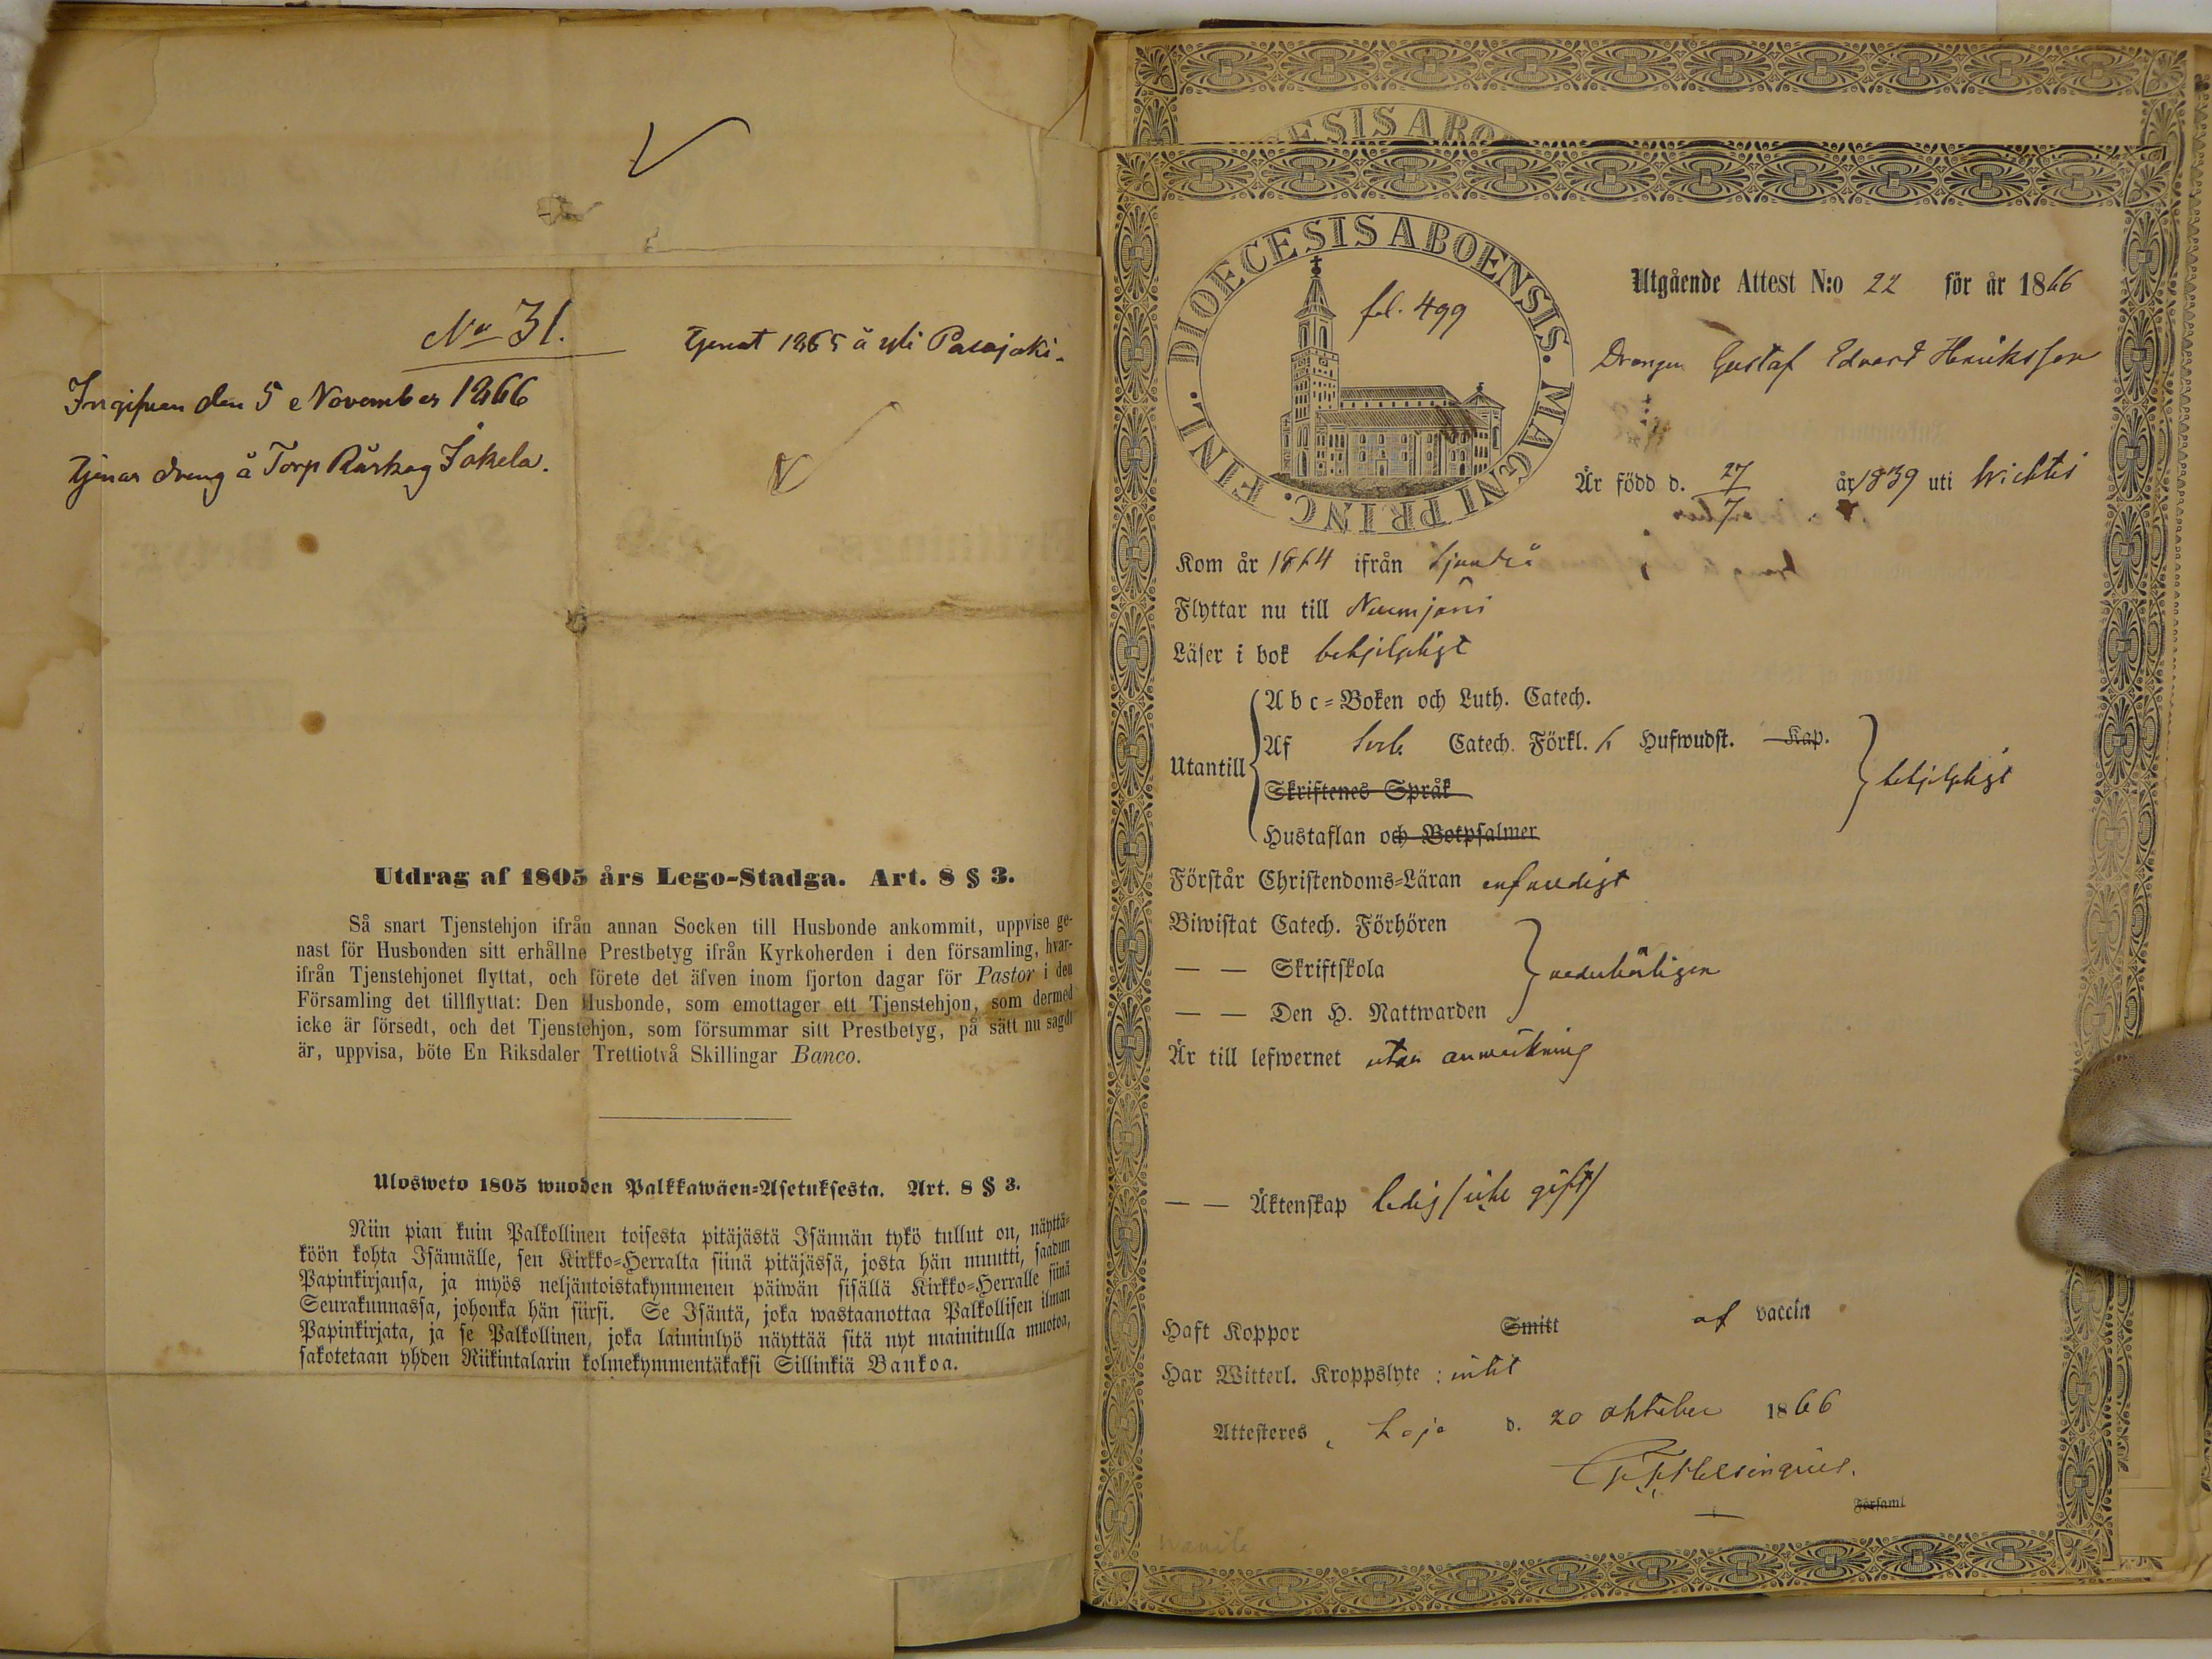 No 31.
Ingifven den 5 November 1866
tjenar dreng å Torp Råskog Jokela.
tjenat 1865 å yli
Utdrag af 1805 års Lego-Stadga. Art. 8 § 3.
Så snart Tjenstehjon ifrån annan Socken till Husbonde ankommit, uppvise ge-
nast för Husbonden sitt erhållne Prestbetyg ifrån Kyrkoherden i den församling, hvar-
ifrån Tjenstehjonet flyttat, och förete det äfven inom fjorton dagar för Pastor i den
Församling det tillflyttat: Den Husbonde, som emottager ett Tjenstehjon, som dermed
icke är försedt, och det Tjenstehjon, som försummar sitt Prestbetyg, på sätt nu sagdt
är, uppvisa, böte En Riksdaler Trettiotvå Skillingar Banco.
Ulosweto 1805 wuoden Palkkawäen=Asetuksesta. Art. 8 § 3.
Niin pian kuin Palkollinen toisesta pitäjästä Isännän tykö tullut on, näyttä=
köön kohta Isännälle, sen Kirkko=Herralta siinä pitäjässä, josta hän muutti, saadun
Papinkirjansa, ja myös neljäntoistakymmenen päiwän sisällä Kirkko=Herralle siinä
Seurakunnassa, johonka hän siirsi. Se Isäntä, joka wastaanottaa Palkollisen ilman
Papinkirjata, ja se Palkollinen, joka laiminlyö näyttää sitä nyt mainitulla muotoa,
sakotetaan yhden Riikintalarin kolmekymmentäkaksi Sillinkiä Bankoa.
DIOECESIS ABOENSIS. MAGNI PRINC. FINL.
fol. 499
Utgående Attest N:o 22 för år 1866
Drängen Gustaf Edvard Henriksson
Är född d. 27/7 år 1839 uti Wichtis
Kom år 1864 ifrån Sjundeå
Flyttar nu till Nummjärvi
Läser i bok behjelpligt
Utantill
A b c=Boken och Luth. Catech.
Af Sveb. Catech. Förkl. 6 Hufwudst. Kap.
Skriftenes Språk
Hustaflan och Botpsalmer
behjelpligt
Förstår Christendoms=Läran enfaldigt
Biwistat Catech. Förhören
— — Skriftskola
— — Den H. Nattwarden
vederbörligen
Är till lefwernet utan anmärkning
— — Äktenskap ledig /icke gift/
Haft Koppor Smitt af vaccin
Har Witterl. Kroppslyte : intet
Attesteres, Lojo d. 20 oktober 1866
Helsingius.
Församl